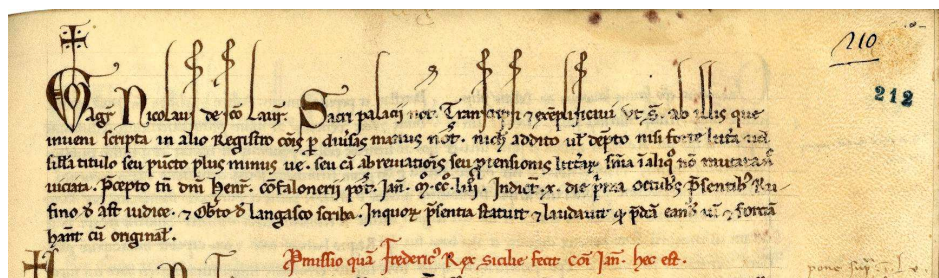 210
212
Magr Nicolaus de sco Laur. Sacri palacii not. Transcripsi ⁊ exeplificavi ut s. ab illis que
inveni scripta in alio Registro cois p divsas manus not. nich addito vl depto nisi forte litta vel
silla titulo seu puncto plus minus ve. seu ca abreviationis seu ptensionis littar. sma i aliq no mutata
viciata. Pcepto tn dni Henr. cofalonerii pot. Ian. M. CC. Liii. Indict. x. die pma octubs psentibs Ru-
fino d ast iudice. ⁊ Obto d Langasco scriba. Inquor psentia statuit ⁊ laudavit qd pdca eande vi ⁊ forca
hant cu original.
Pmissio qua Frederics Rex sicilie fecit coi Ian. hec est.